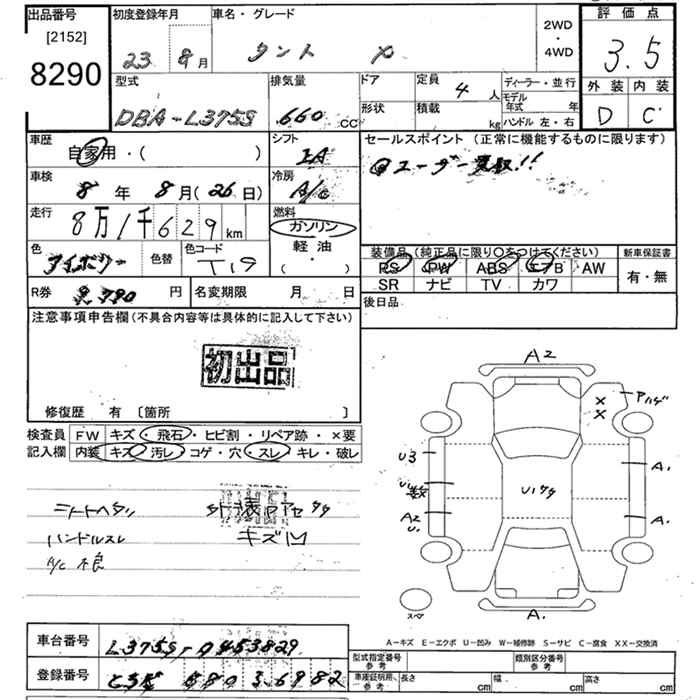 出品番号
[2152]
8290
初度登録年月
23 8月
車名・グレード
タント X
2WD
・
4WD
評価点
3.5
外装 内装
D C
型式
DBA-L375S
排気量
660 CC
ドア
形状
定員
4 人
積載
kg
ディーラー・並行
モデル年式 年
ハンドル 左・右
車歴
自家用・( )
シフト
IA
セールスポイント (正常に機能するものに限ります)
ユーザー買取!!
車検
8年 8月(26日)
冷房
A/C
走行
8万1千629km
燃料
ガソリン
軽油
( ・ )
色
アイボリー
色替
色コード
T19
装備品(純正品に限り〇をつけてください)
PS PW ABS エアB AW
SR ナビ TV カワ
新車保証書
有・無
R券
円
名変期限 月 日
後日品
注意事項申告欄(不具合内容等は具体的に記入して下さい)
初出品
修復歴 有 〔箇所 〕
検査員記入欄
FW キズ・飛石・ヒビ割・リペア跡・×要
内装 キズ・汚レ・コゲ・穴・スレ・キレ・破レ
シートヘタリ
ハンドルスレ
A/C 不良
キズ凹
A2
×
×
アハゲ
U3
U1
数
A2
U1
U1ワタ
A1
A1
A1
スペア
A-キズ E-エクボ U-凹み W-補修跡 S-サビ C-腐食 XX-交換済
車台番号
L375S-0453829
登録番号
580 3 6982
型式指定番号
参考
類別区分番号
参考
車庫証明用、参考
長さ cm
幅 cm
高さ cm